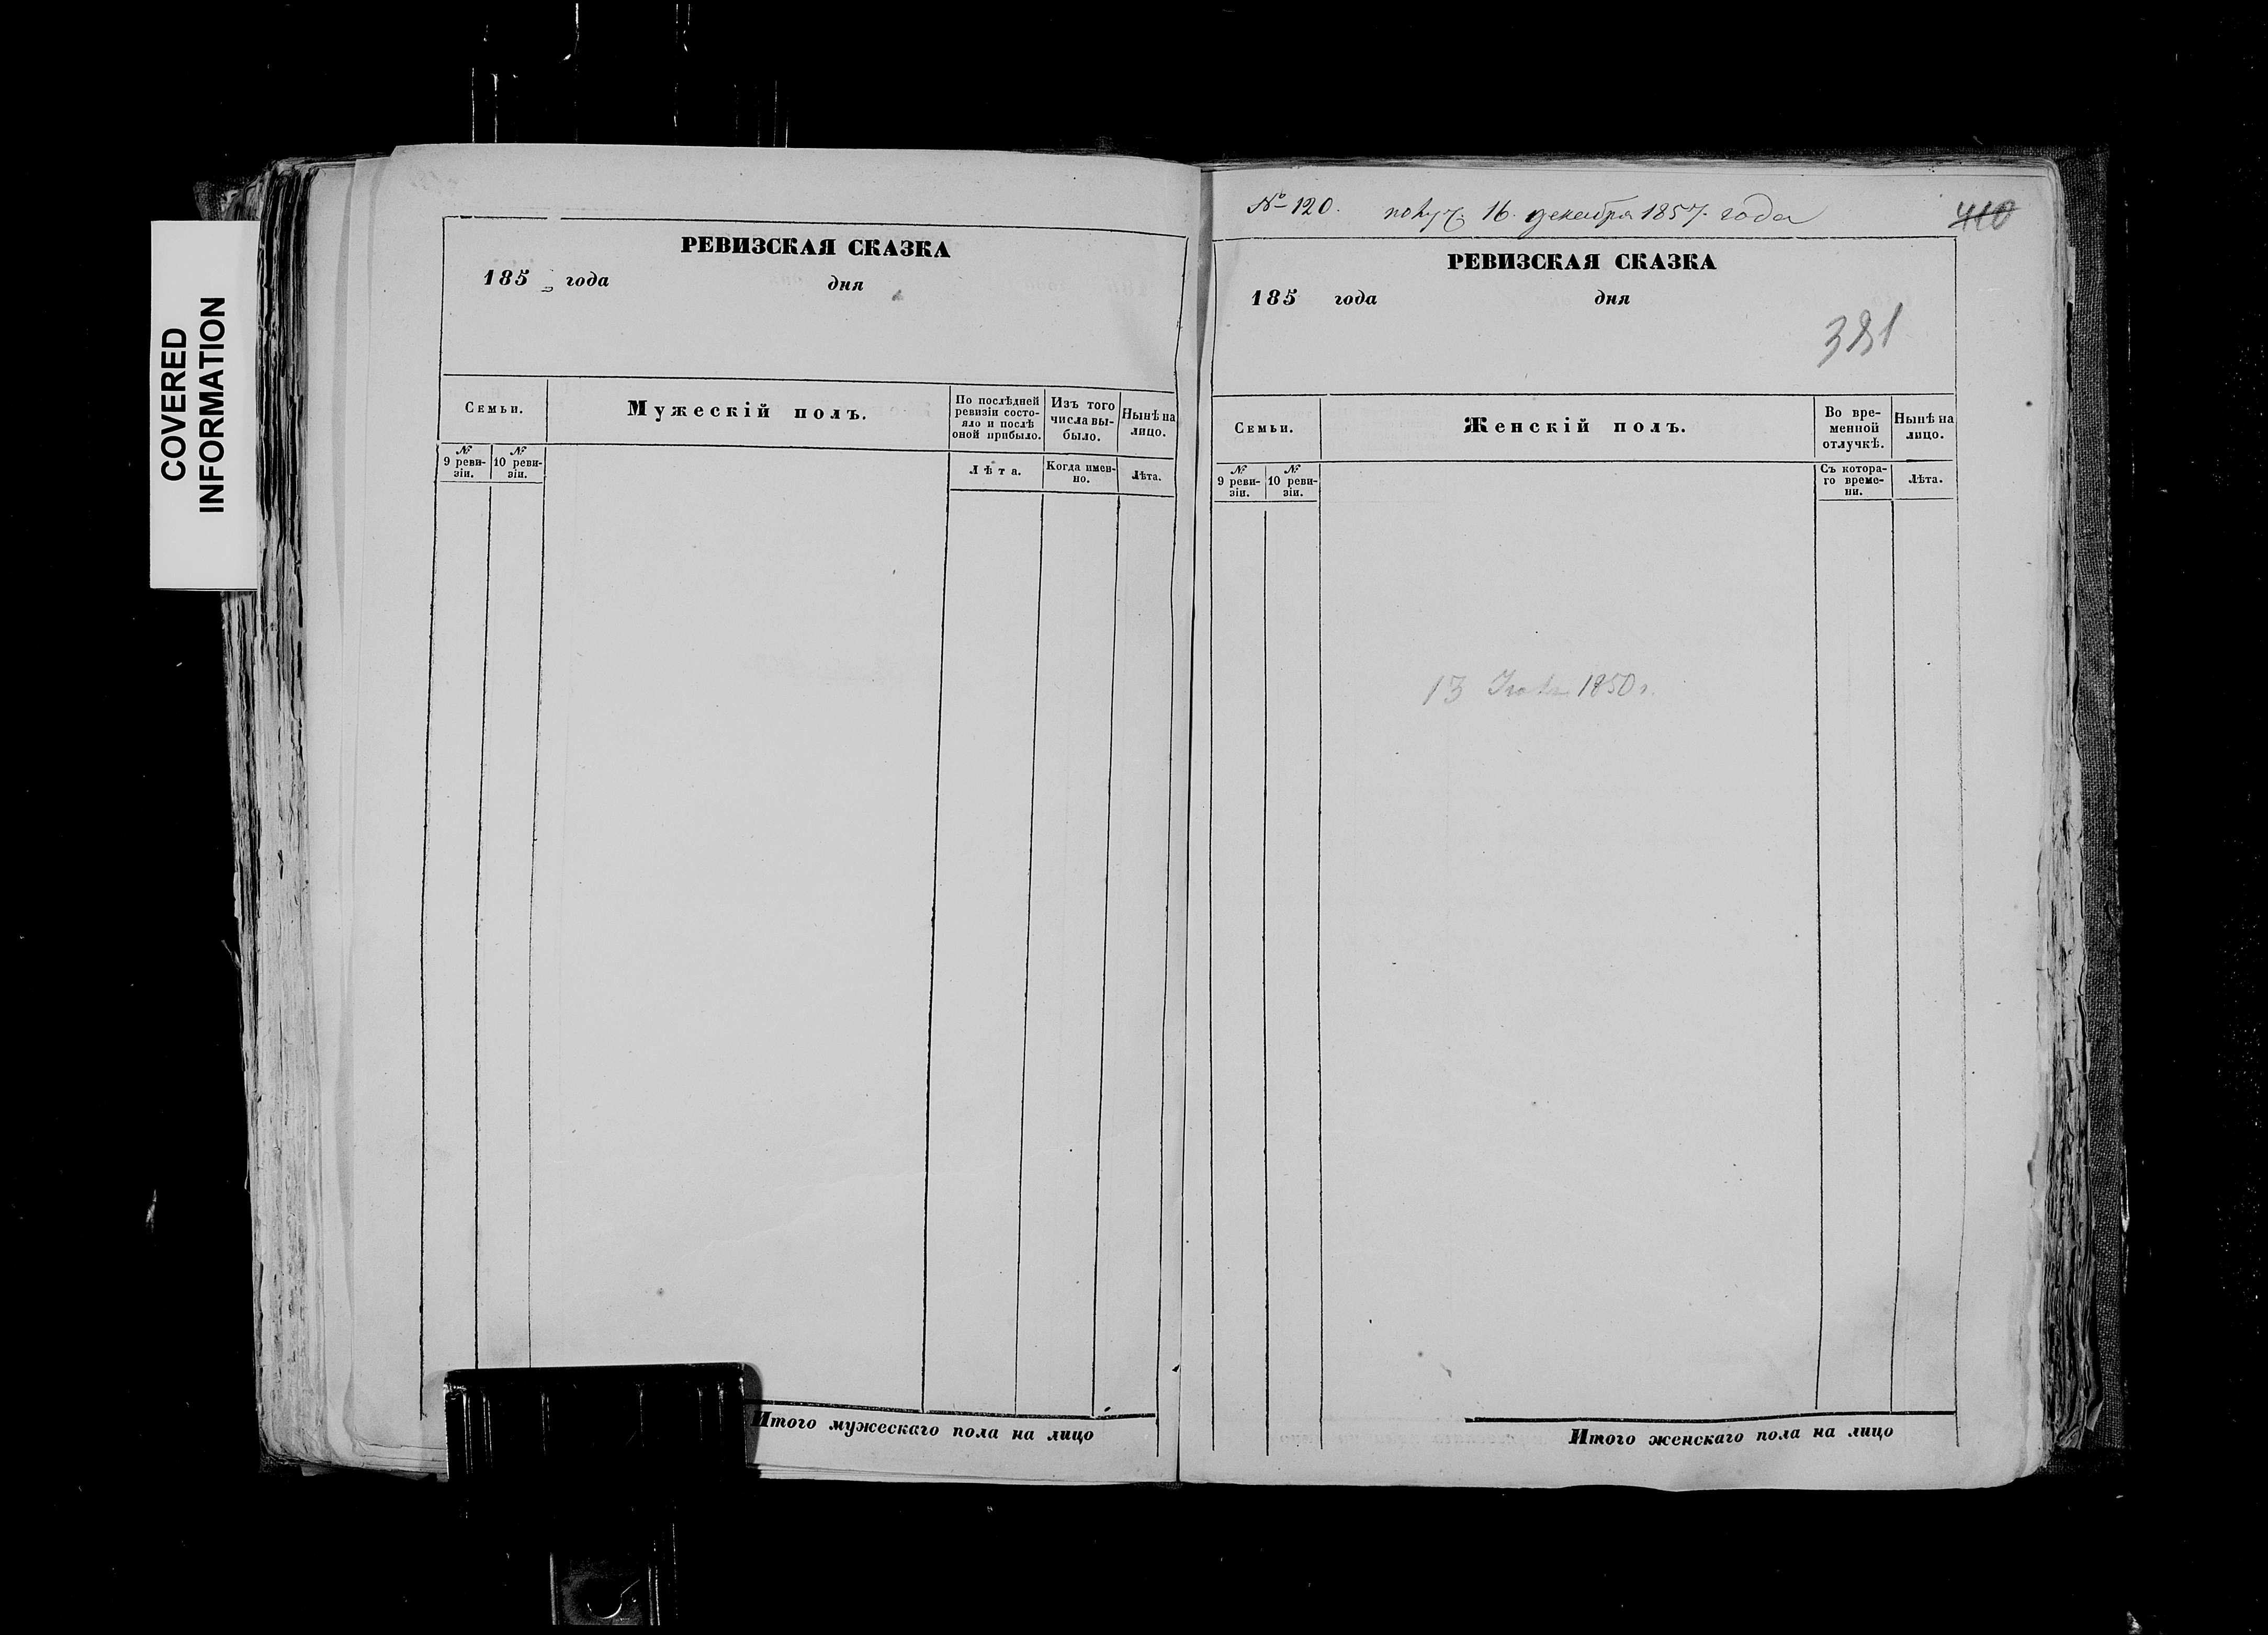 COVERED
INFORMATION
РЕВИЗСКАЯ СКАЗКА
185 года дня
Семьи.
Мужескій полъ.
По послѣдней
ревизіи состо-
яло и послѣ
оной прибыло.
Изъ того
числа вы-
было.
Нынѣ на
лицо.
№
9 реви-
зіи.
№
10 реви-
зіи.
Лѣта.
Когда имен-
но.
Лѣта.
Итого мужескаго пола на лицо
№ 120. получ. 16. декабря 1857. года
410
РЕВИЗСКАЯ СКАЗКА
185 года дня
381
Семьи.
Женскій полъ.
Во вре-
менной
отлучкѣ.
Нынѣ на
лицо.
№
9 реви-
зіи.
№
10 реви-
зіи.
Съ котора-
го време-
ни.
Лѣта.
13 1850 г.
Итого женскаго пола на лицо